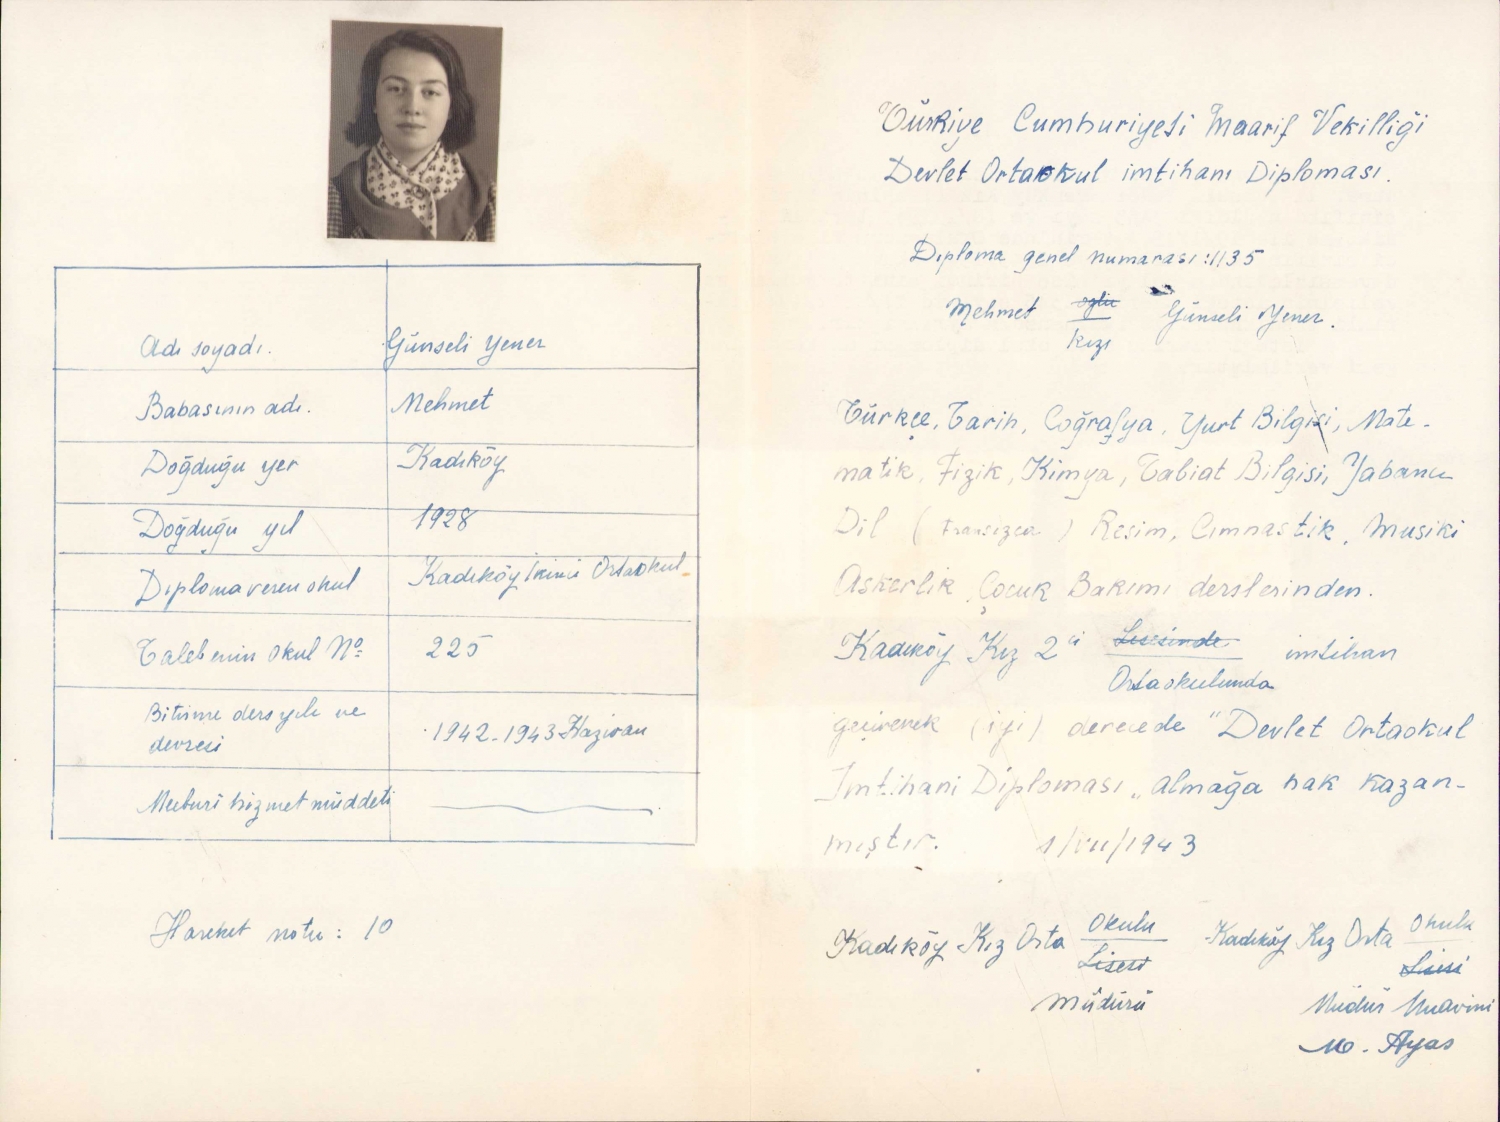 Adı soyadı. Günseli Yener
Babasının adı. Mehmet
Doğduğu yer Kadıköy
Doğduğu yıl 1928
Diploma veren okul Kadıköy İkinci Ortaokul
Talebenin okul No 225
Bitirme ders yılı ve
devresi 1942-1943 Haziran
Mecburi hizmet müddeti
Hareket notu: 10
Türkiye Cumhuriyeti Maarif Vekilliği
Devlet Ortaokul imtihanı Diploması.
Diploma genel numarası: 1135
Mehmet oğlu Günseli Yener.
kızı
Türkçe, Tarih, Coğrafya, Yurt Bilgisi, Mate-
matik, Fizik, Kimya, Tabiat Bilgisi, Yabancı
Dil ( Fransızca ) Resim, Cimnastik, Musiki
Askerlik, Çocuk Bakımı derslerinden.
Kadıköy Kız 2ci Lisesinde imtihan
Ortaokulunda
geçirerek (iyi) derecede "Devlet Ortaokul
İmtihanı Diploması„ almağa hak kazan-
mıştır. 1/VII/1943
Kadıköy Kız Orta Okulu
Lisesi
Müdürü
Kadıköy Kız Orta Okulu
Lisesi
Müdür Muavini
M. Ayas